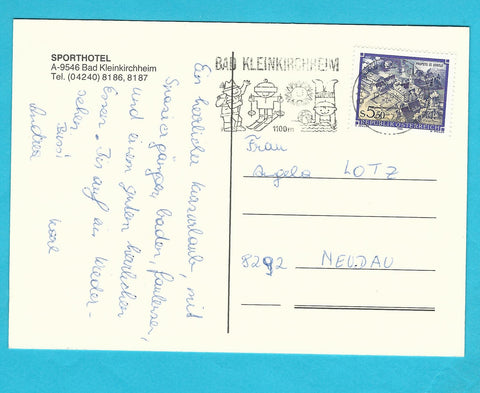 SPORTHOTEL
A-9546 Bad Kleinkirchheim
Tel. (04240) 8186, 8187
Ein herrlicher Kurzurlaub, mit
Spaziergängen, baden, faulenzen,
und einem guten herrlichen
Essen. Bis auf ein Wieder-
sehen
Bussi
Andrea
BAD KLEINKIRCHHEIM
1100m
S 5.50
REPUBLIK ÖSTERREICH
Frau
Angela LOTZ
8292 NEUDAU